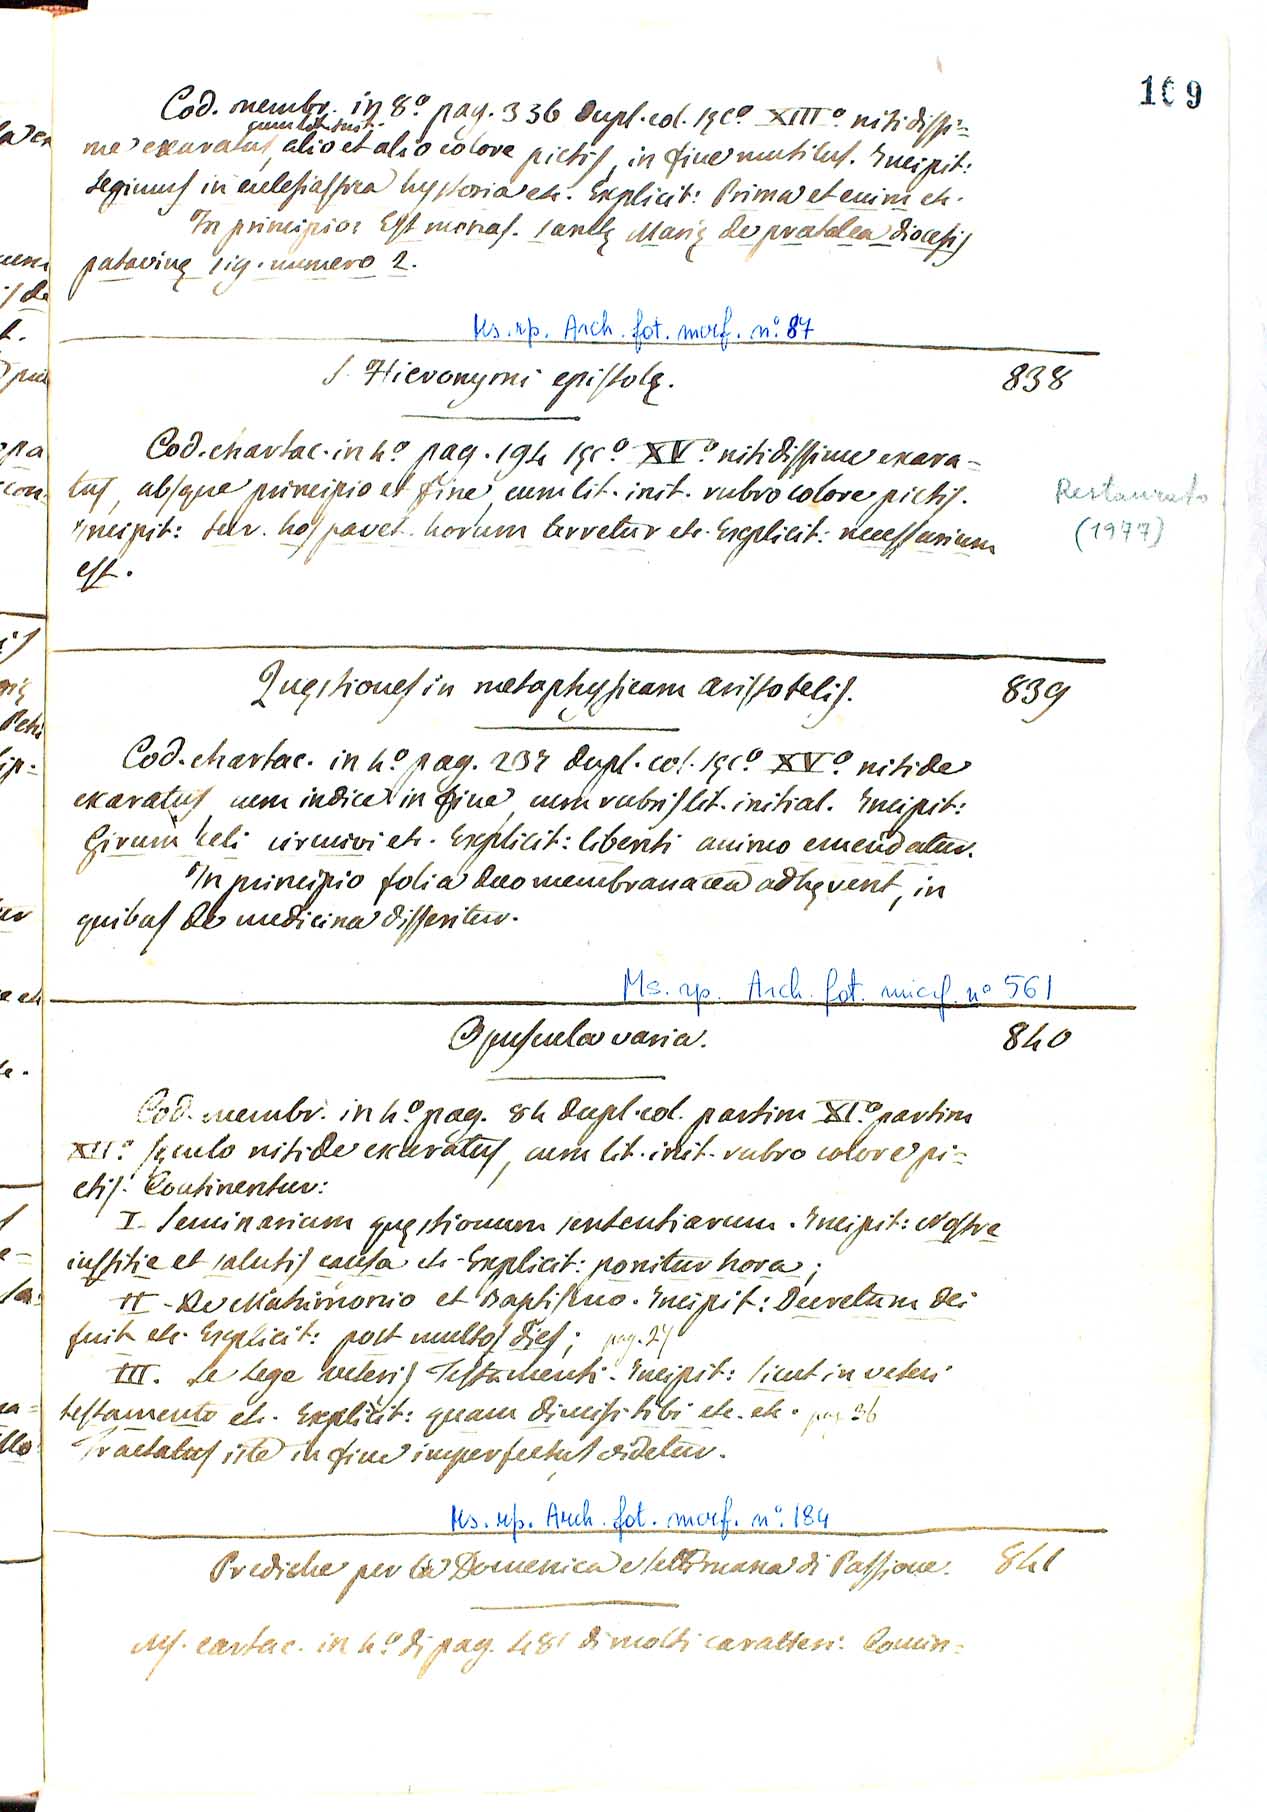 169
Cod. membr. in 8.° pag. 336 dupl. col. sęc.° XIII.° nitidissi=
cum lit. init.
me exaratus, alio et alio colore pictis, in fine mutilus. Incipit:
Legimus in eclesiastica hystoria etc. Explicit: Prima et enim etc.
In principio: Est monas. sanctę Marię de pratalea diocesis
patavinę sig. numero 2.
Ms. rip. Arch. fot. micrf. n.° 87
S. Hieronymi epistolę. 838
Cod. chartac. in 4.° pag. 194 sęc.° XV.° nitidissime exara=
tus, absque principio et fine, cum lit. init. rubro colore pictis.
Incipit: tur. hos pavet. horum terretur etc. Explicit: necessarium
est.
Restaurato
(1977)
Quęstiones in metaphysicam Aristotelis. 839
Cod. chartac. in 4.° pag. 237 dupl. col. sęc.° XV.° nitide
exaratus, cum indice in fine, cum rubris lit. initial. Incipit:
Girum celi circuivi etc. Explicit: libenti animo emendatur.
In principio folia duo membranacea adhęrent, in
quibus de medicina disseritur.
Ms. rip. Arch. fot. micrf. n° 561
Opuscula varia. 840
Cod. membr. in 4.° pag. 84 dupl. col. partim XI.° partim
XII.° sęculo nitide exaratus, cum lit. init. rubro colore pi=
ctis. Continentur:
I. Seminarium quęstionum sententiarum. Incipit: Nostre
iustitie et salutis causa etc. Explicit: ponitur hora;
II - De Matrimonio et Baptismo. Incipit: Decretum dei
fuit etc. Explicit: post multos dies; pag. 27
III. De Lege veteris Testamenti. Incipit: sicut in veteri
testamento etc. Explicit: quam dimisi tibi etc. etc. pag. 36
Tractatus iste in fine imperfectus videtur.
Ms. rip. Arch. fot. micrf. n.° 184
Prediche per la Domenica e settimana di Passione. 841
Ms. cartac. in 4.° di pag. 481 di molti caratteri: Comin=